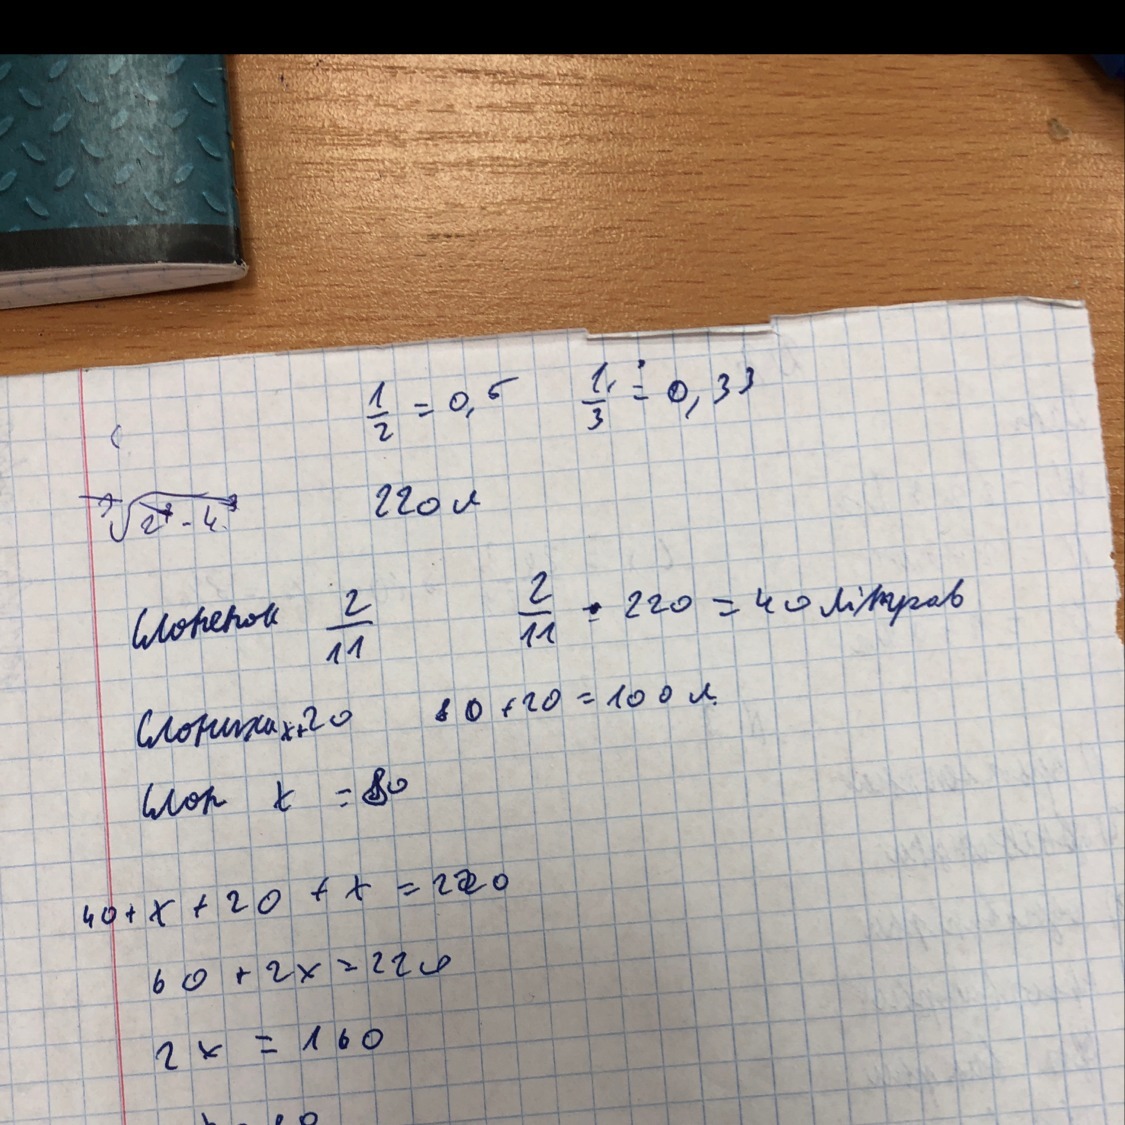 1/2 = 0,5 1/3 = 0,33
220 л
Слоненок 2/11 2/11 · 220 = 40 літров
Слониха x+20 80 + 20 = 100 л.
Слон x = 80
40 + x + 20 + x = 220
60 + 2x = 220
2x = 160